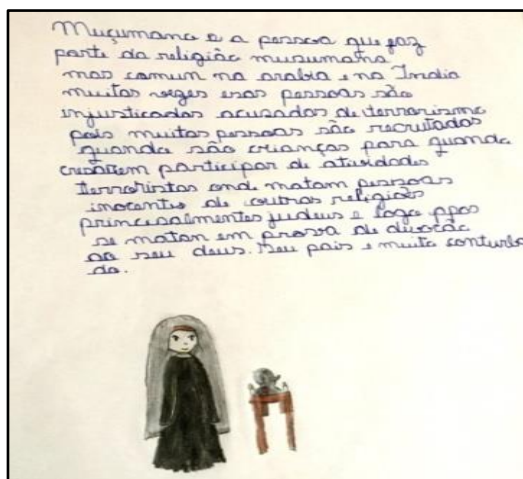 Muçumano e a pessoa que faz
parte da religião musumana
mas comun na arabia e na India
muitas vezes esas pessoas são
injustiçados acusados de terrorismo
pois muitas pessoas são recrutados
quando são crianças para quando
cresserem participar de atividades
terroristas onde matam pessoas
inocentes de outras religiões
principalmentes judeus e logo apos
se matan em prova de devoção
ao seu deus. Seu pais e muito conturba
do.